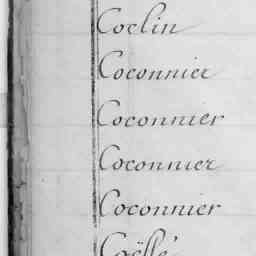 Coelin
Coconnier
Coconnier
Coconnier
Coconnier
Coëllé